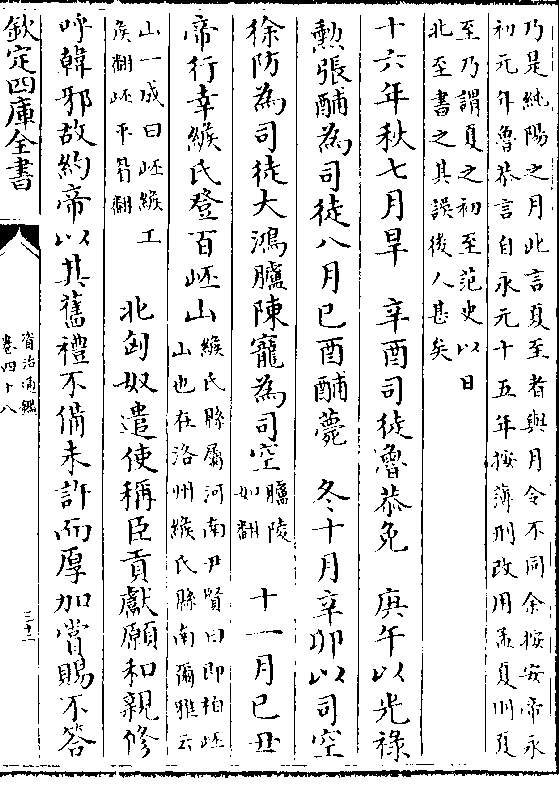 乃是純陽之月此言夏至者與月令不同余按安帝永
初元年魯恭言自永元十五年按薄刑改用孟夏則夏
至乃謂夏之初至范史以日
北至書之其誤後人甚矣
十六年秋七月旱　辛酉司徒魯恭免　庚午以光祿
勲張酺為司徒八月已酉酺薨　冬十月辛卯以司空
徐防為司徒大鴻臚陳寵為司空
臚陵
如翻
十一月已丑
帝行幸緱氏登百岯山
緱氏縣屬河南尹賢曰即柏岯
山也在洛州緱氏縣南彌雅云
山一成曰岯緱工
侯翻岯平眉翻
北匈奴遣使稱臣貢獻願和親修
呼韓邪故約帝以其舊禮不備未許而厚加賞賜不答
欽定四庫全書
資治通鑑
卷四十八
三十二